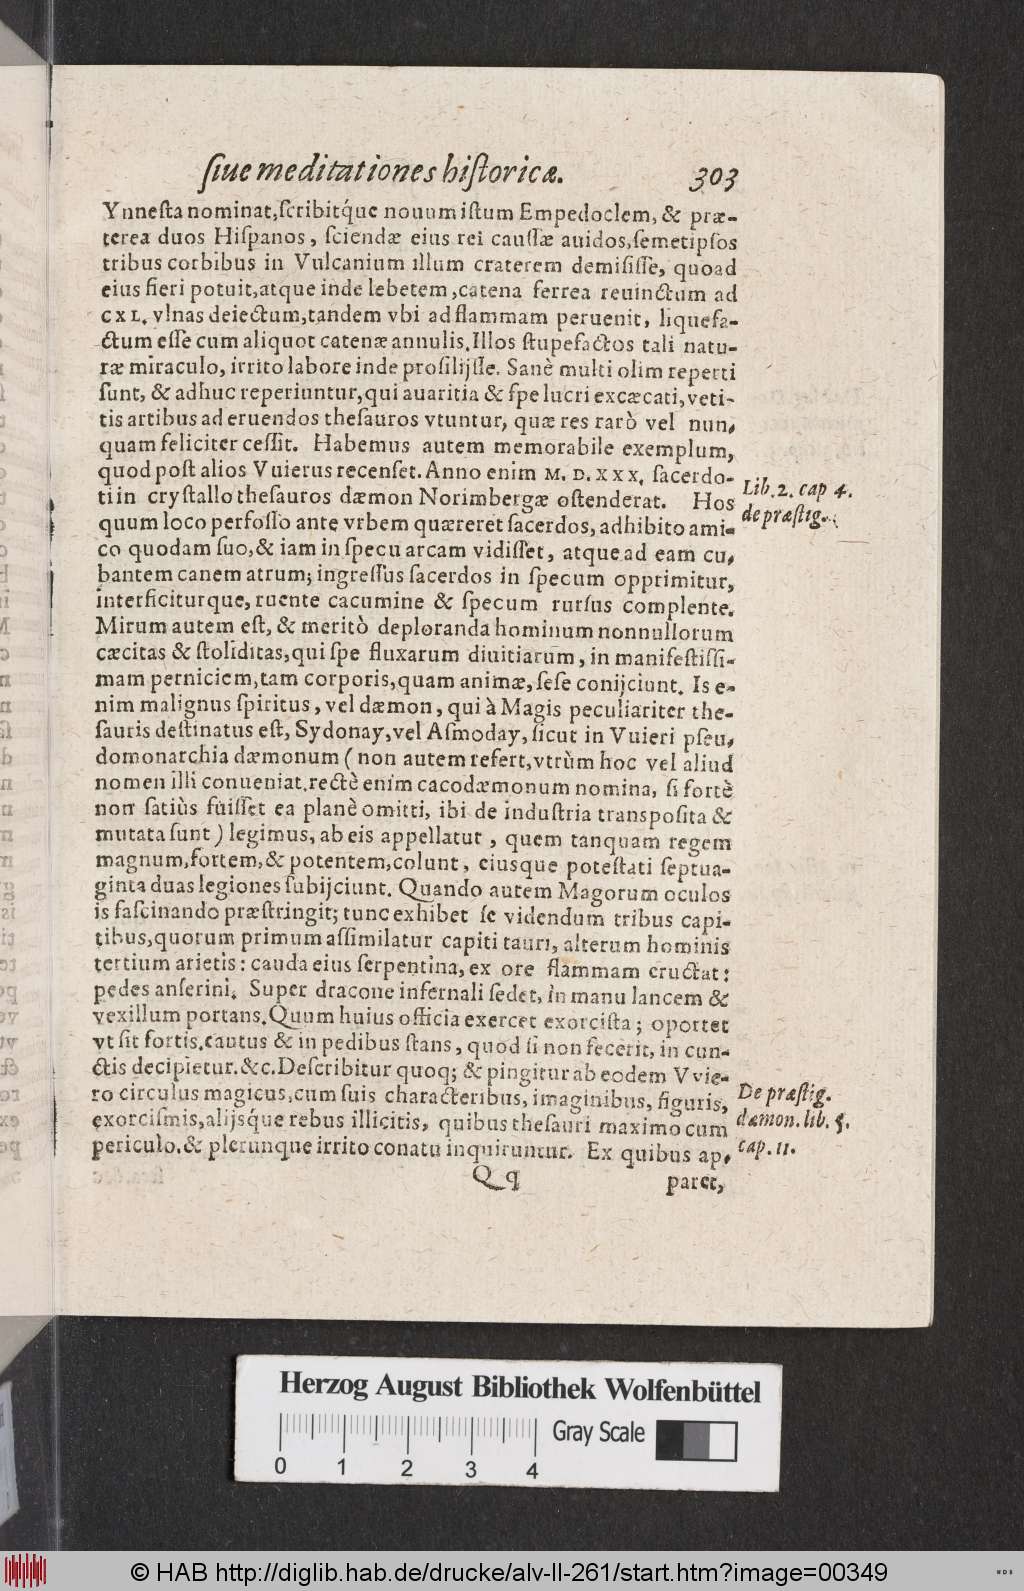 ſiue meditationes hiſtoricæ. 303
Ynneſta nominat,ſcribitq́ue nouum iſtum Empedoclem, & præ-
terea duos Hiſpanos, ſciendæ eius rei cauſſæ auidos,ſemetipſos
tribus corbibus in Vulcanium illum craterem demiſiſſe, quoad
eius fieri potuit,atque inde lebetem,catena ferrea reuinctum ad
CXL. vlnas deiectum,tandem vbi ad flammam peruenit, liquefa-
ctum eſſe cum aliquot catenæ annulis.Illos ſtupefactos tali natu-
ræ miraculo, irrito labore inde proſilijſſe. Sanè multi olim reperti
ſunt, & adhuc reperiuntur,qui auaritia & ſpe lucri excæcati,veti-
tis artibus ad eruendos theſauros vtuntur, quæ res rarò vel nun-
quam feliciter ceſſit. Habemus autem memorabile exemplum,
quod poſt alios Vuierus recenſet. Anno enim M. D. XXX. ſacerdo-
ti in cryſtallo theſauros dæmon Norimbergæ oſtenderat. Hos
quum loco perfoſſo ante vrbem quæreret ſacerdos, adhibito ami-
co quodam ſuo,& iam in ſpecu arcam vidiſſet, atque ad eam cu-
bantem canem atrum; ingreſſus ſacerdos in ſpecum opprimitur,
interficiturque, ruente cacumine & ſpecum rurſus complente.
Mirum autem eſt, & meritò deploranda hominum nonnullorum
cæcitas & ſtoliditas,qui ſpe fluxarum diuitiarum, in manifeſtiſſi-
mam perniciem,tam corporis,quam animæ,ſeſe conijciunt. Is e-
nim malignus ſpiritus, vel dæmon, qui à Magis peculiariter the-
ſauris deſtinatus eſt, Sydonay,vel Aſmoday, ſicut in Vuieri pſeu-
domonarchia dæmonum (non autem refert,vtrùm hoc vel aliud
nomen illi conueniat.rectè enim cacodæmonum nomina, ſi fortè
non ſatiùs fuiſſet ea planè omitti, ibi de induſtria transpoſita &
mutata ſunt) legimus, ab eis appellatur, quem tanquam regem
magnum,fortem,& potentem,colunt, eiusque poteſtati ſeptua-
ginta duas legiones ſubijciunt. Quando autem Magorum oculos
is faſcinando præſtringit; tunc exhibet ſe videndum tribus capi-
tibus,quorum primum aſſimilatur capiti tauri, alterum hominis
tertium arietis: cauda eius ſerpentina, ex ore flammam eructat:
pedes anſerini. Super dracone infernali ſedet, in manu lancem &
vexillum portans.Quum huius officia exercet exorciſta; oportet
vt ſit fortis.cautus & in pedibus ſtans, quod ſi non fecerit, in cun-
ctis decipietur.&c.Deſcribitur quoq; & pingitur ab eodem Vvie-
ro circulus magicus,cum ſuis characteribus, imaginibus, figuris,
exorciſmis,alijsq́ue rebus illicitis, quibus theſauri maximo cum
periculo.& plerunque irrito conatu inquiruntur. Ex quibus ap-
Qq paret,
Lib.2. cap 4.
de præſtig.
De præſtig.
dæmon.lib. 5.
cap. 11.
Herzog August Bibliothek Wolfenbüttel
Gray Scale
0 1 2 3 4
© HAB http://diglib.hab.de/drucke/alv-ll-261/start.htm?image=00349